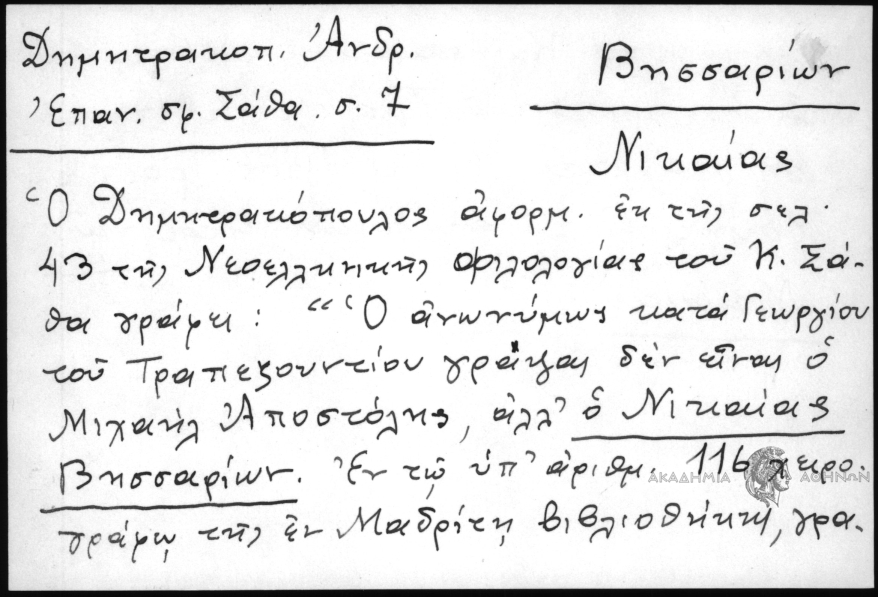 Δημητρακοπ. Ἀνδρ.
Ἐπαν. σφ. Σάθα. σ. 7
Βησσαρίων
Νικαίας
Ὁ Δημητρακόπουλος ἀφορμ. ἐκ τῆς σελ.
43 τῆς Νεοελληνικῆς Φιλολογίας τοῦ Κ. Σά-
θα γράφει : “Ὁ ἀνωνύμως κατὰ Γεωργίου
τοῦ Τραπεζουντίου γράψας δὲν εἶναι ὁ
Μιχαὴλ Ἀποστόλης, ἀλλ’ ὁ Νικαίας
Βησσαρίων. Ἐν τῷ ὑπ’ ἀριθμ. 116 χειρο-
γράφῳ τῆς ἐν Μαδρίτῃ βιβλιοθήκης, γρα-
ΑΚΑΔΗΜΙΑ ΑΘΗΝΩΝ